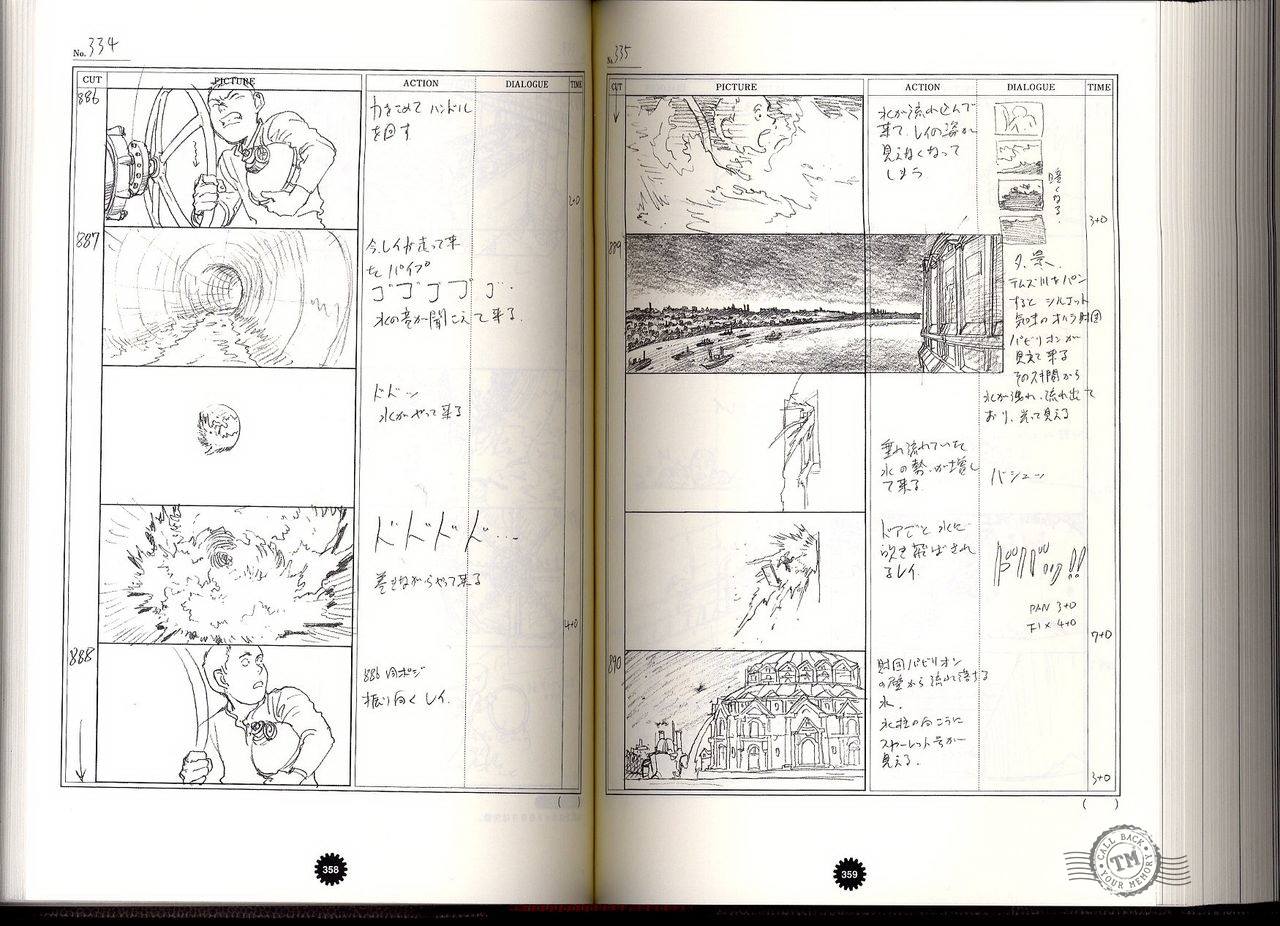 No. 334
CUT PICTURE ACTION DIALOGUE TIME
886
力をこめて ハンドル
を回す
2+0
887
今、レイが走って来
た パイプ
ゴゴゴゴゴ・
水の音が聞こえて来る.
ドドーン
水がやって来る
ドドドド…
巻きながらやって来る
4+0
888
886 同ポジ
振り向くレイ.
( )
358
No. 335
CUT PICTURE ACTION DIALOGUE TIME
水が流れ込んで
来て、レイの姿が
見えなくなって
しまう
暗くなる.
3+0
889
夕景.
テムズ川をパン
すると シルエット
気味のオハラ財団
パビリオンが
見えて来る
その隙間から
水が漏れ、流れ出て
おり、光って見える
垂れ流れていた
水の勢いが増し
て来る
バシューッ
ドアごと 水に
吹き飛ばされ
るレイ.
PAN 3+0
FIX 4+0
7+0
890
財団パビリオン
の壁から流れ落する
水.
水柱の向こうに
スカーレット号が
見える.
3+0
( )
359
CALL BACK
TM
YOUR MEMORY